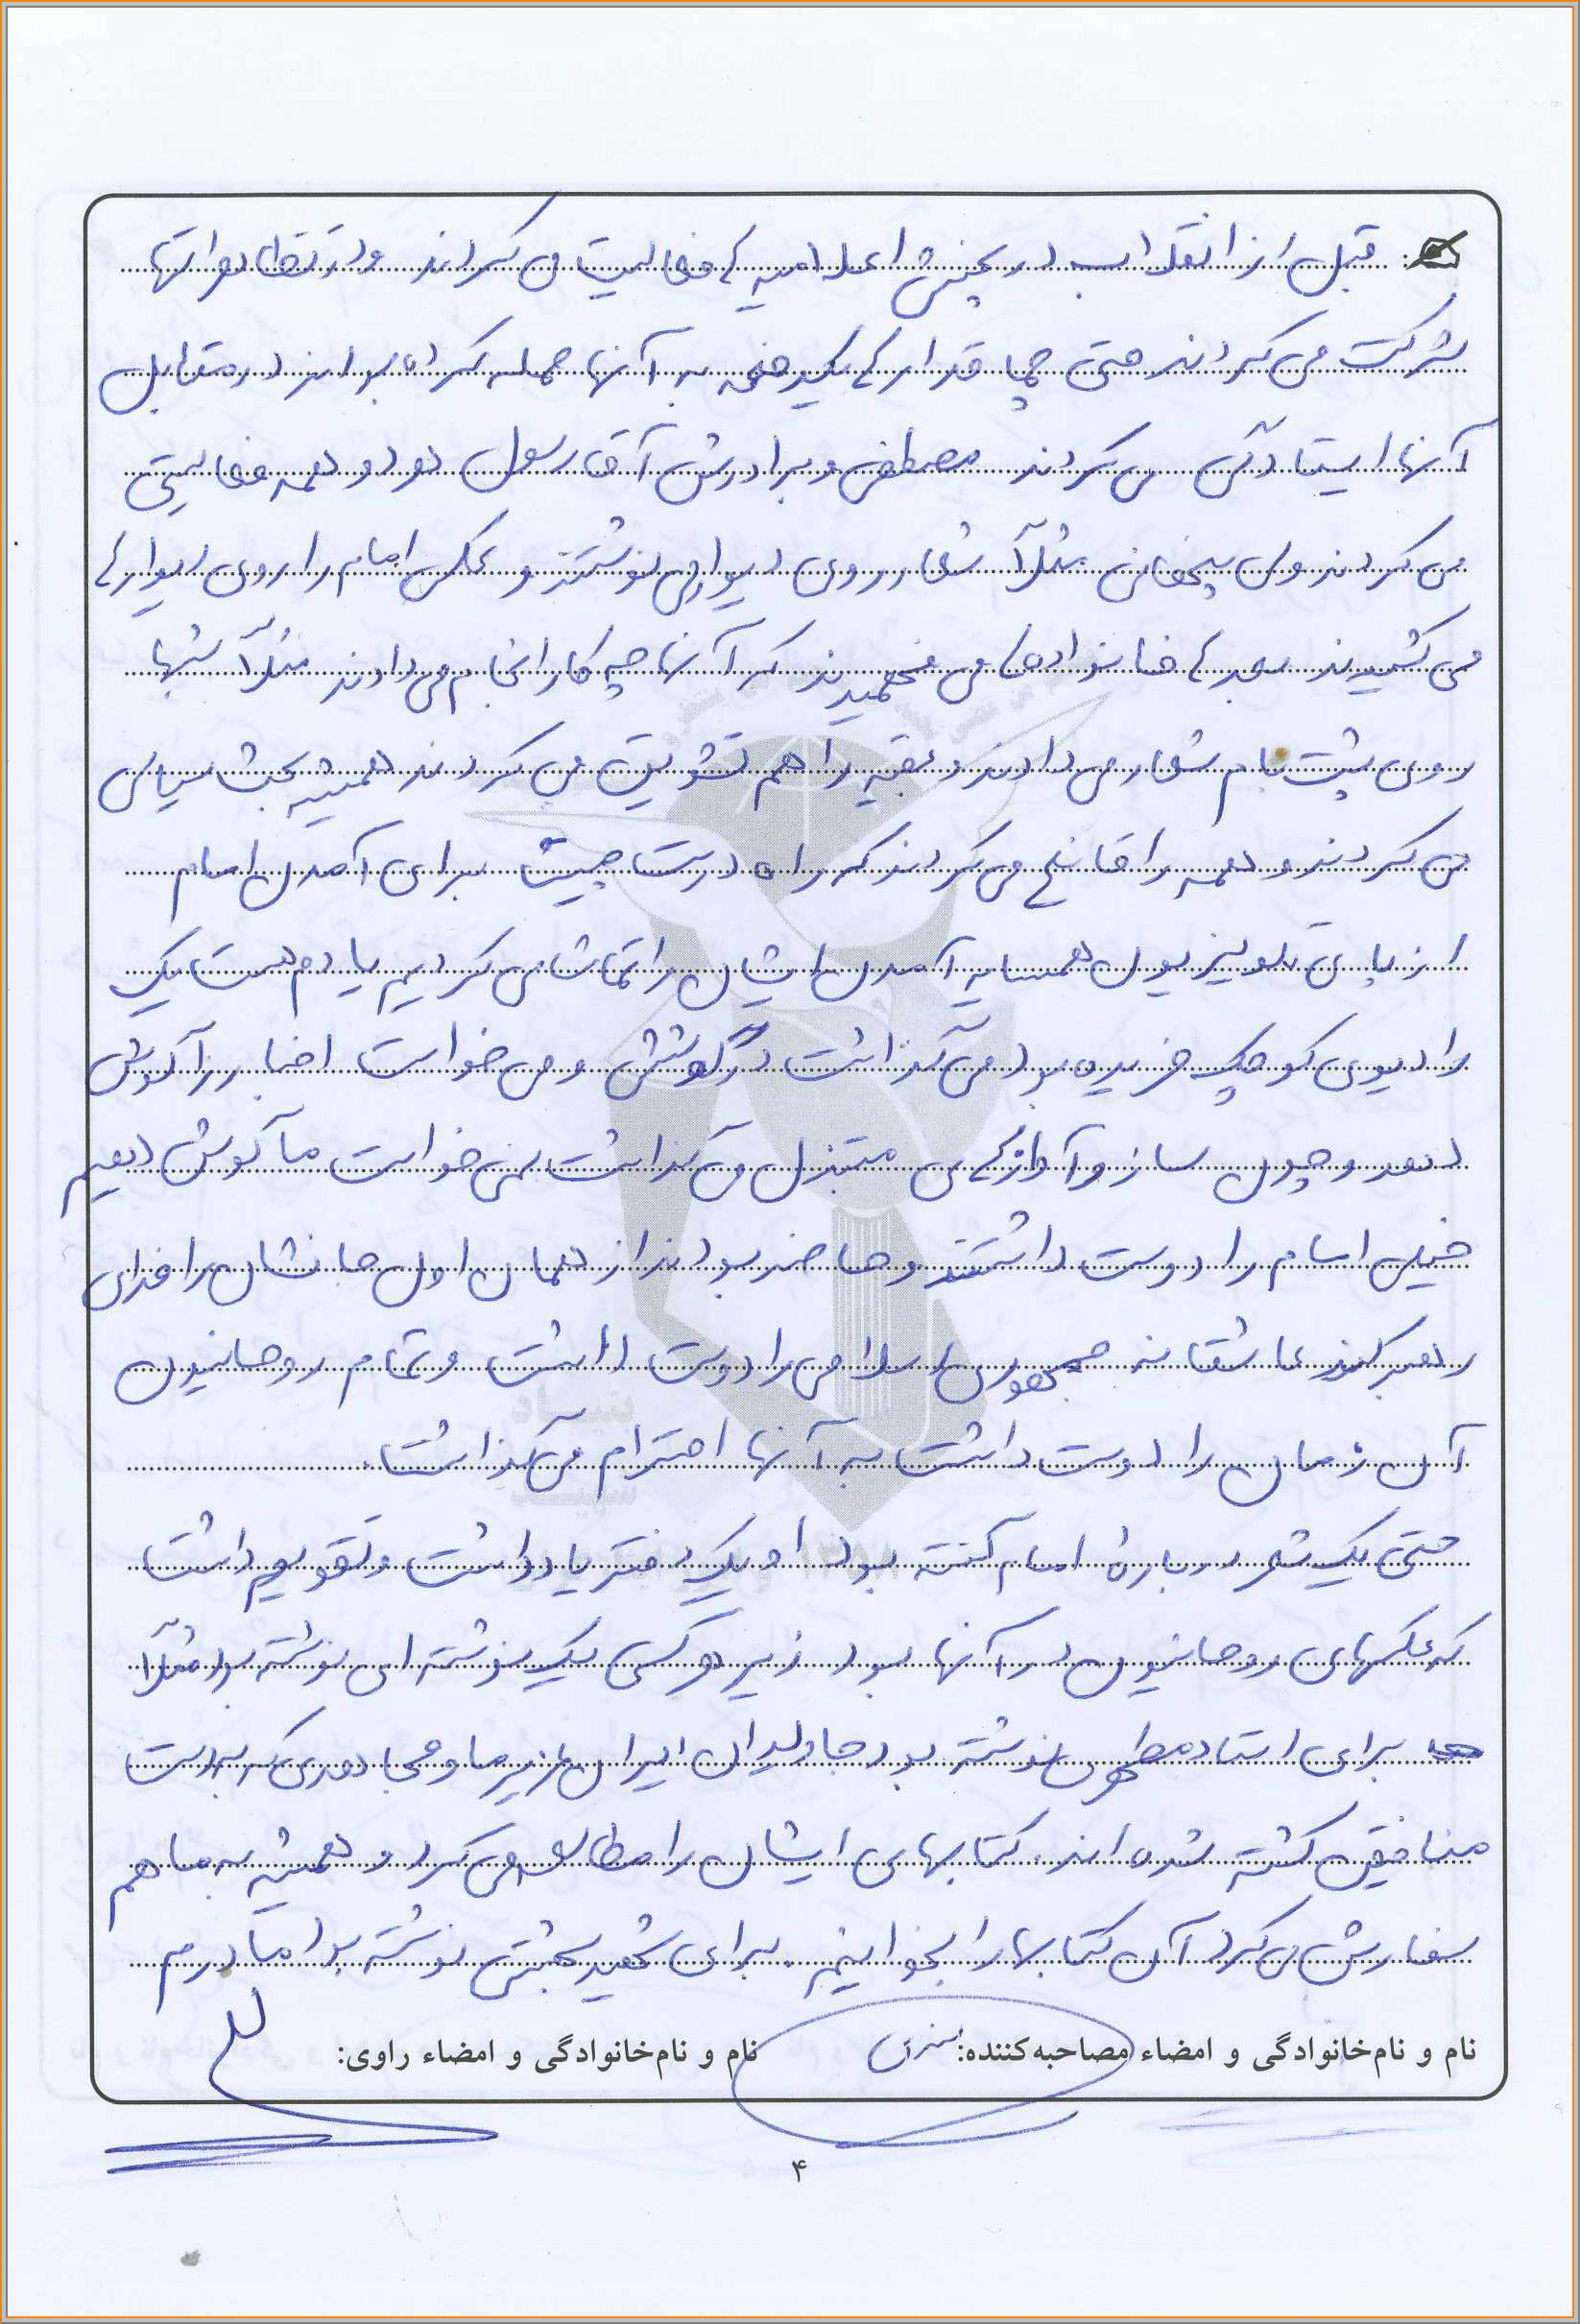 قبل از انقلاب در پخش اعلامیه ها فعالیت می کردند و در تظاهراتها
شرکت می کردند حتی چماقدارها یکدفعه به آنها حمله کرده بودند در مقابل
آنها ایستادگی می کردند مصطفی و برادرش آقا رسول هر دو همه فعالیتی
می کردند ولی پنهانی مثلاً شعار روی دیوار می نوشتند و عکس امام را روی دیوارها
می کشیدند بعدها خانواده ها می فهمیدند که آنها چه کار انجام می دادند مثلاً شبها
روی پشت بام شعار می دادند و بقیه را هم تشویق می کردند همیشه بحث سیاسی
می کردند و همه را قانع می کردند که راه درست چیست برای آمدن امام
از پای تلویزیون همسایه آمدن ایشان را تماشا می کردیم یادم هست یک
رادیوی کوچک خریده بود می گذاشت در گوشش و می خواست اخبار را گوش
دهد و چون ساز و آوازهای مبتذل می گذاشت نمی خواست ما گوش دهیم
خیلی امام را دوست داشتند و حاضر بودند از همان اول جانشان را فدای
رهبر کنند عاشقانه جمهوری اسلامی را دوست داشت و تمام روحانیون
آن زمان را دوست داشت به آنها احترام می گذاشت.
حتی یک شعر درباره امام گفته بود او یک دفتر یادداشت و تقویم داشت
که عکسهای روحانیون در آنها بود زیر هر کسی یک نوشته ای نوشته بود مثلاً
برای استاد مطهری نوشته بود جاویدان ایران عزیز ما و مجاهدی که به دست
منافقین کشته شده اند. کتابهای ایشان را مطالعه می کرد و همیشه به ما هم
سفارش می کرد آن کتابها را بخوانیم. برای شهید بهشتی نوشته بود اما درم
نام و نام‌خانوادگی و امضاء مصاحبه‌کننده: نام و نام‌خانوادگی و امضاء راوی:
۴